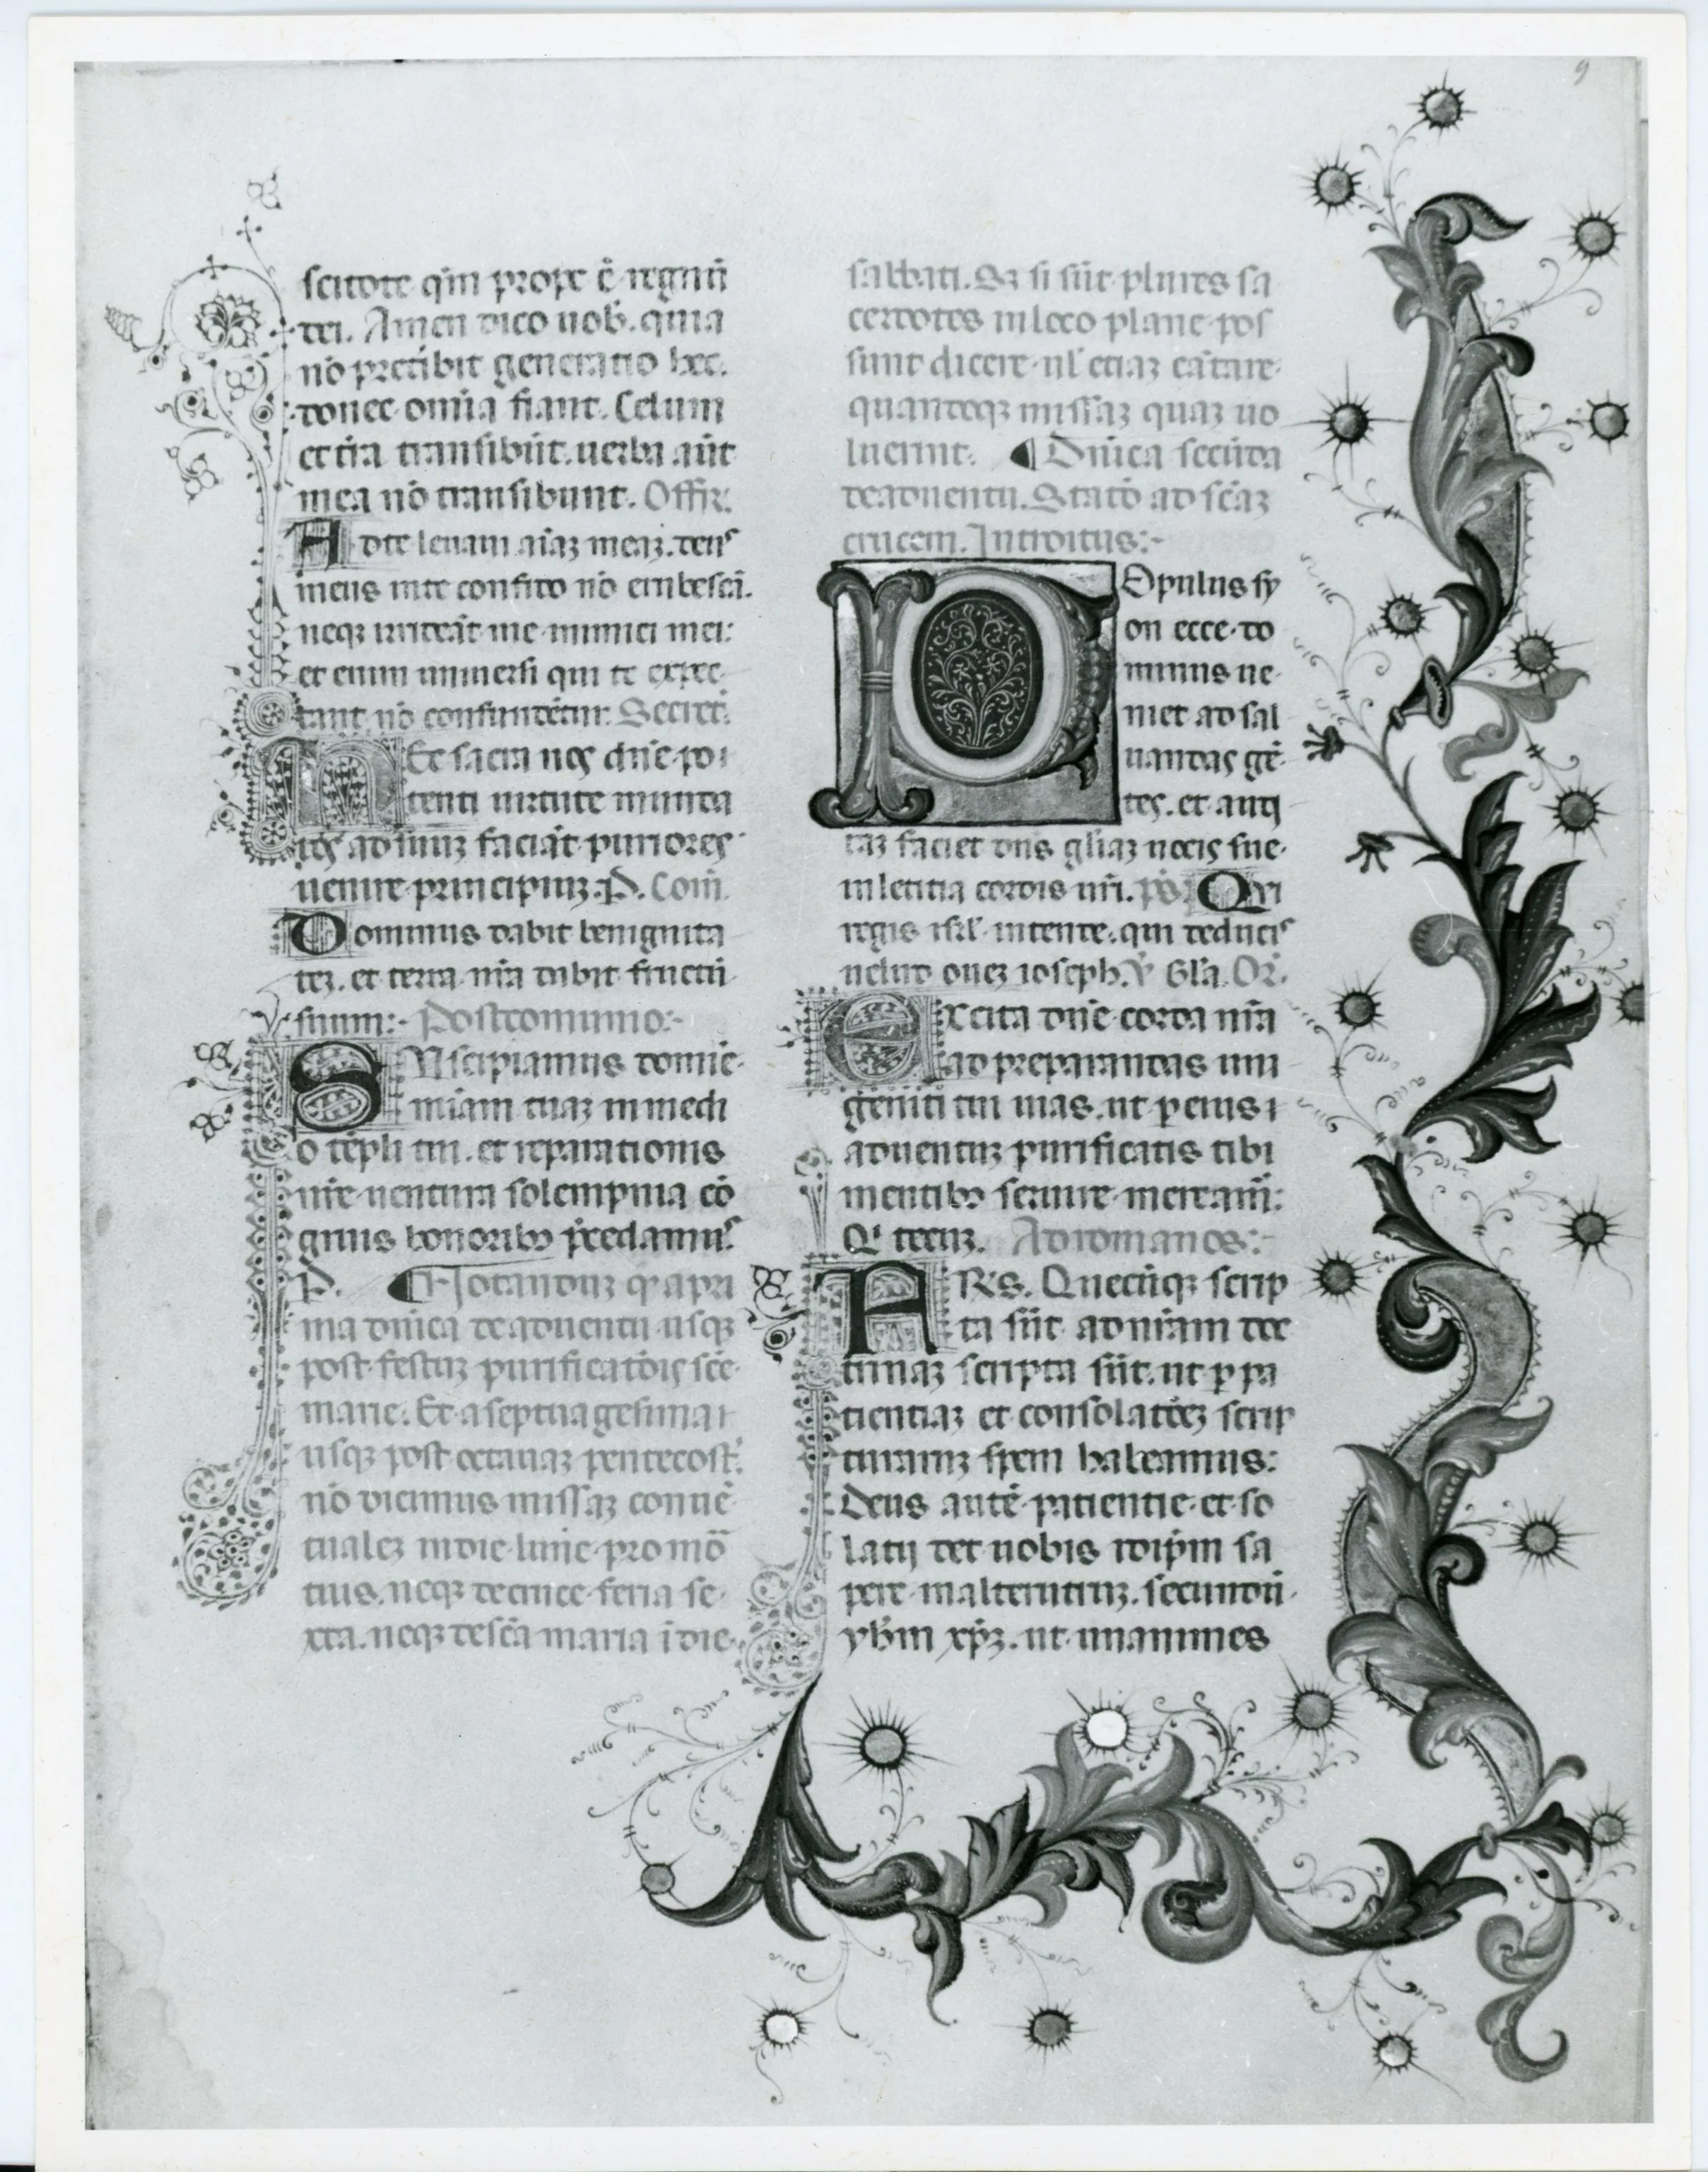 9
scitote qm̄ prope ē regnū
dei. Amen dico uob̄. quia
nō preteribit generatio hec.
donec omīa fiant. Celum
et tr̄a transibūt. uerba aūt
mea nō transibunt. Offr̄.
Adte leuam aīaꝫ meaꝫ. deus
meus inte confido nō erubescā.
neqꝫ irrideāt me inimici mei:
et enim uniuersi qui te expec
tant nō confundētur. Secret̄.
Hec sacra nos dn̄e po
tenti uirtute munda
tos ad suuꝫ faciāt puriores
uenire principiuꝫ. P. Com̄.
Dominus dabit benignita
teꝫ. et terra nr̄a dabit fructū
suum:- Postcomunio:-
SUscipiamus domīe
miam tuaꝫ in medi
o tēpli tui. et reparationis
nr̄e uentura solempnia cō
gruis honoribꝫ p̄cedamus.
P. Notanduꝫ ꝙ a pri
ma dn̄ica de aduentu usqꝫ
post festuꝫ purificatōis scē
marie. Et a septuagesima
usqꝫ post octauaꝫ pentecost̄.
nō dicimus missaꝫ conuē
tualeꝫ in die lune pro mō
tuis. neqꝫ de cruce feria se
xta. neqꝫ de scā maria ī die
sabbati. Sꝫ si sūt plures sa
cerdotes in loco plane pos
sunt dicere ul̄ etiaꝫ cātare
quamcūqꝫ missaꝫ quaꝫ uo
luerint. Dn̄ica secūda
de aduentu. Statō ad scāꝫ
crucem. Introitus:-
POpulus sy
on ecce do
minus ue
niet ad sal
uandas gē
tes. et audi
taꝫ faciet dn̄s gl̄iaꝫ uocis sue
in letitia cordis ur̄i. ps̄. Qui
regis isrl̄ intende. qui deducis
uelud oueꝫ ioseph. V̄ Gl̄a. Or̄.
EXcita dn̄e corda nr̄a
ad preparandas uni
geniti tui uias. ut ꝑ eius
aduentuꝫ purificatis tibi
mentibꝫ seruire mereamr̄:
Q' tecuꝫ. Ad romanos:-
FRs. Quecūqꝫ scrip
ta sūt ad nr̄am doc
trinaꝫ scripta sūt. ut ꝑ pa
tientiaꝫ et consolatōeꝫ scrip
turaruꝫ spem habeamus:
Deus autē patientie et so
latij det nobis idip̄m sa
pere in alterutruꝫ. secundū
yhm̄ xp̄ꝫ. ut unanimes